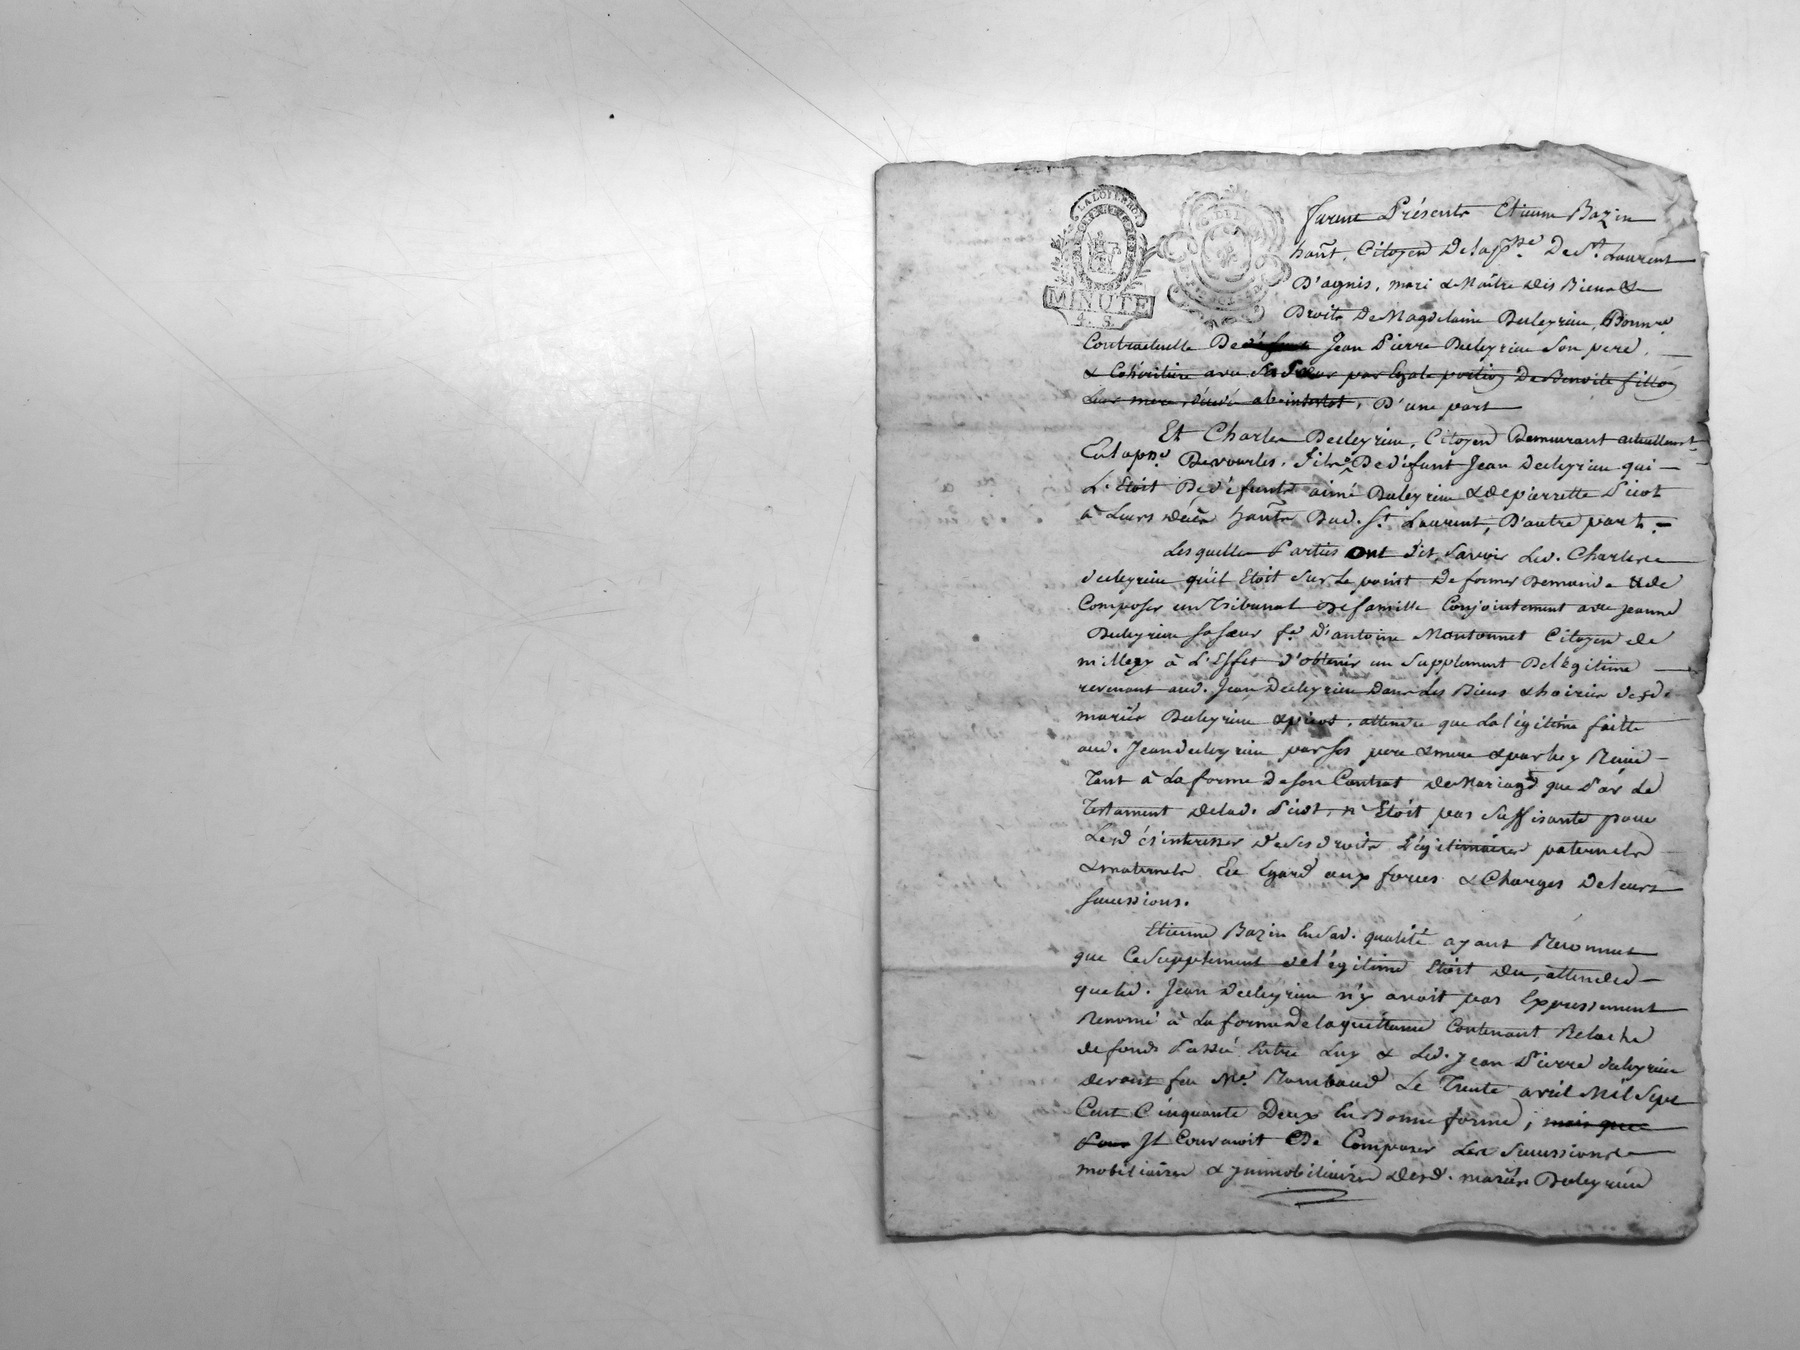 LA LOI ET LE ROI
MINUTE
4. S.
furent Présents Etienne Bazin
hant. Citoyen Delapsse. De St. Laurent
D'agnis, mari & Maître des Biens &
Droits De Magdelaine Deleyrieu, Donnre
Contractuelle De défunt Jean Pierre Deleyrieu Son pere,
& Cohéritiere avec Ses Sœurs par Egale portion De Benoite fillon
Leur mere, décédée abintestat, D'une part
Et Charles Deleyrieu, Citoyen Demeurant actuellemt.
En la psse. De vourles, fils De défunt Jean Deleyrieu qui
L'Etoit De défunts aimé Deleyrieu & de pierrette Picot
à Leurs décès hants Dud. St Laurent, D'autre part.
Lesquelles Parties Ont dit, Savoir Led. Charles
deleyrieu qu'il Etoit Sur Le point De former Demande & de
Composer un Tribunal De famille Conjointement avec jeanne
Deleyrieu sa sœur fe. D'antoine Montonnet Citoyen de
millery à L'Effet d'obtenir un Supplement De légitime
revenant aud. Jean Deleyrieu Dans Les Biens & hoiries desd.
mariés Deleyrieu & picot, attendu que La légitime faitte
aud. Jean deleyrieu par Ses pere & mere & par luy Reçue
Tant à La forme De son Contrat de Mariage que Par Le
Testament De lad. Picot, n'Etoit pas Suffisante pour
Le désintéresser De Ses droits Légitimaires paternels
& maternels Eu Egard aux forces & Charges De leurs
Successions.
Etienne Bazin En Sad. qualité ayant Reconnut
que Ce Supplement de légitime Etoit du, attendu
que led. Jean Deleyrieu n'y avoit pas Expressement
Renoncé à La forme De la quittance Contenant Relache
de fonds Passée Entre Luy & Led. Jean Pierre deleyrieu
devant feu Me. Rambaud Le Trente avril Mil Sept
Cent Cinquante Deux En Bonne forme; mais que
Pour Il Convenoit De Composer Les Successions
mobiliaires & Immobiliaires Desd. mariés Deleyrieu